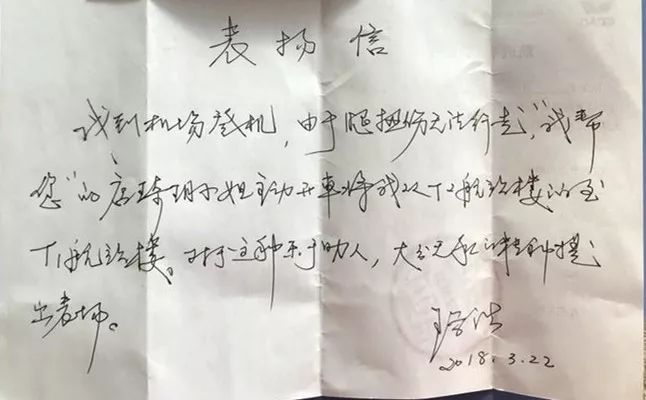 表扬信
我到机场登机,由于腿扭伤无法行走,"我帮
您"的唐琦玥小姐主动开车将我从T2航站楼的至
T1航站楼。对于这种乐于助人,大公无私的精神提
出表扬。
2018.3.22